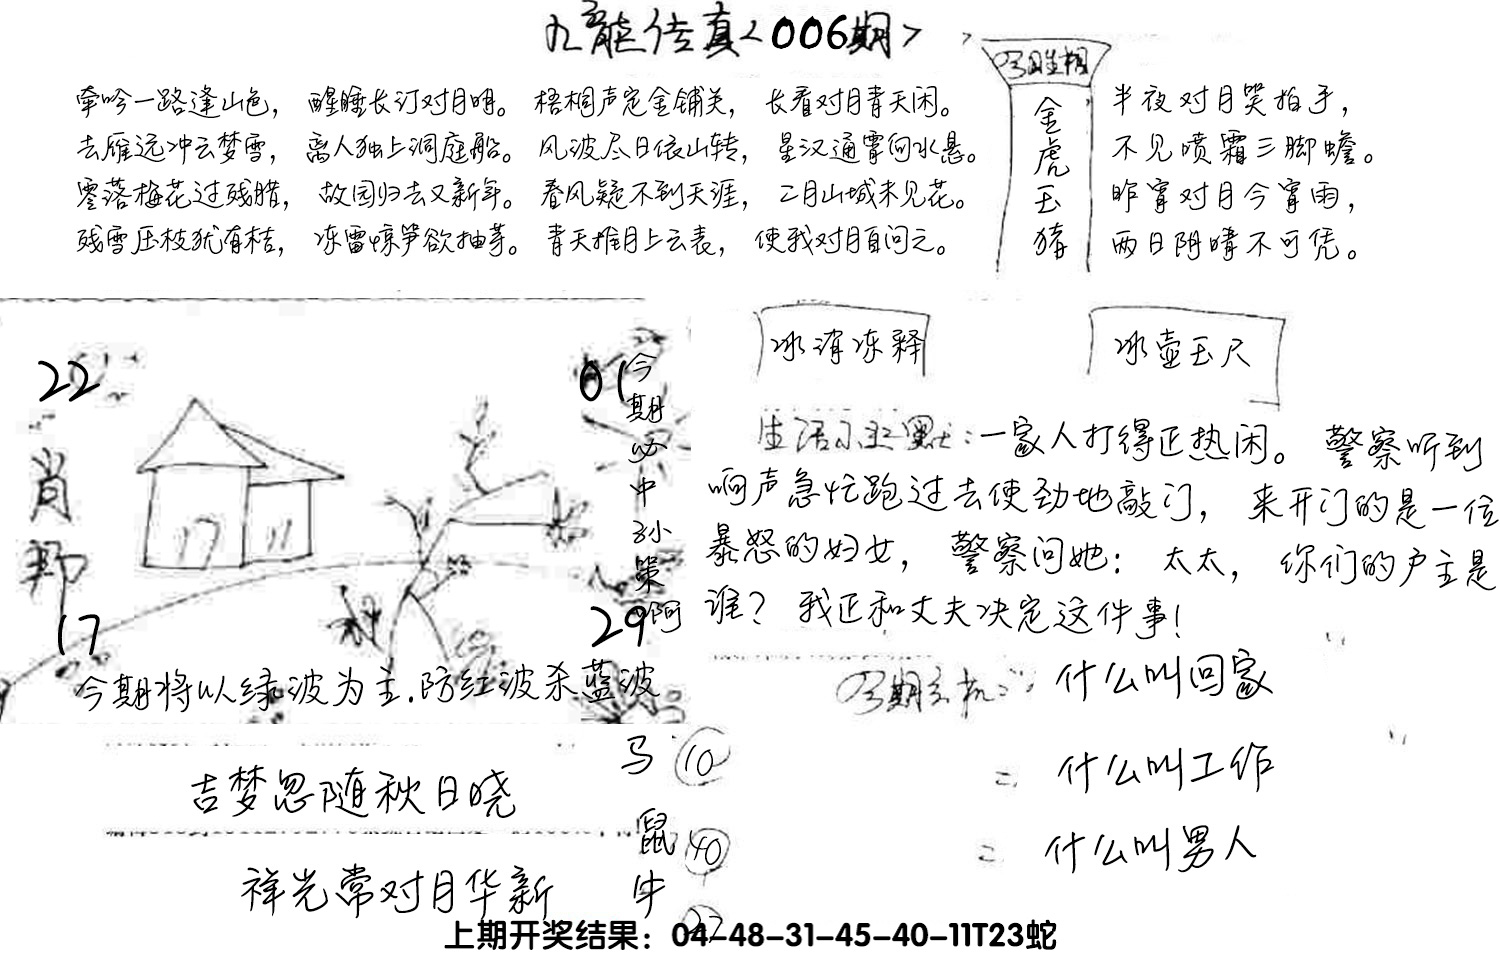 九龙传真<006期>
牵吟一路逢山色，醒睡长汀对月明。梧桐声定金铺关，长看对月青天闲。
去雁远冲云梦雪，离人独上洞庭船。风波尽日依山转，星汉通霄向水悬。
零落梅花过残腊，故园归去又新年。春风疑不到天涯，二月山城未见花。
残雪压枝犹有桔，冻雷惊笋欲抽芽。青天推月上云表，使我对月自问之。
金虎玉猪
半夜对月笑拍手，
不见喷霜三脚蟾。
昨宵对月今宵雨，
两日阴晴不可凭。
22
01
肖
17
29
今期必中孙策啊
今期将以绿波为主.防红波杀蓝波
冰消冻释
冰壶玉尺
生活小幽默：一家人打得正热闹。警察听到
响声急忙跑过去使劲地敲门，来开门的是一位
暴怒的妇女，警察问她：太太，你们的户主是
谁？我正和丈夫决定这件事！
今期玄机：什么叫回家
= 什么叫工作
= 什么叫男人
吉梦忽随秋日晓
祥光常对月华新
马 10
鼠 40
牛
上期开奖结果：04-48-31-45-40-11T23蛇